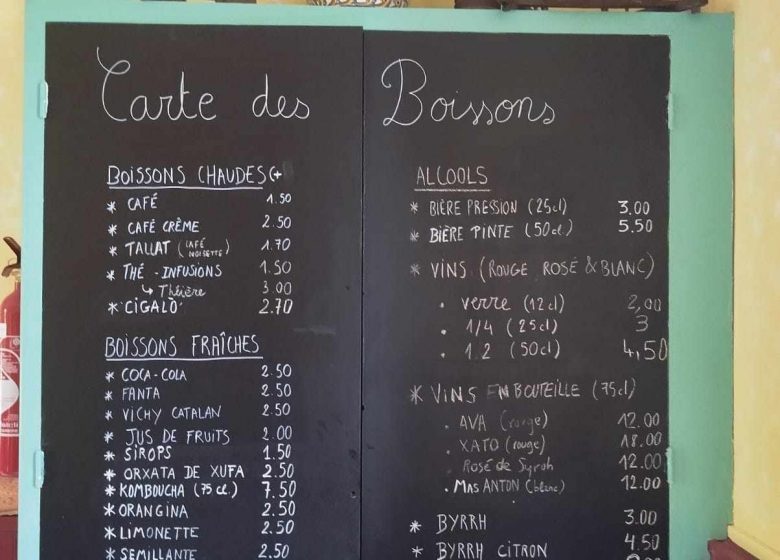 Carte des
BOISSONS CHAUDES
* CAFÉ 1.50
* CAFÉ CRÈME 2.50
* TALLAT (CAFÉ NOISETTE) 1.70
* THÉ - INFUSIONS 1.50
↳ Théière 3.00
* CIGALÒ 2.70
BOISSONS FRAÎCHES
* COCA-COLA 2.50
* FANTA 2.50
* VICHY CATALAN 2.50
* JUS DE FRUITS 2.00
* SIROPS 1.50
* ORXATA DE XUFA 2.50
* KOMBOUCHA (75 cl.) 7.50
* ORANGINA 2.50
* LIMONETTE 2.50
* SEMILLANTE 2.50
Boissons
ALCOOLS
* BIÈRE PRESSION (25cl) 3.00
* BIÈRE PINTE (50cl.) 5.50
* VINS (ROUGE ROSÉ & BLANC)
. verre (12cl) 2,00
. 1/4 (25cl) 3
. 1.2 (50cl) 4,50
* VINS EN BOUTEILLE (75cl)
. AVA (rouge) 12.00
. XATO (rouge) 18.00
. Rosé de Syrah 12.00
. MAS ANTON (blanc) 12.00
* BYRRH 3.00
* BYRRH CITRON 4.50